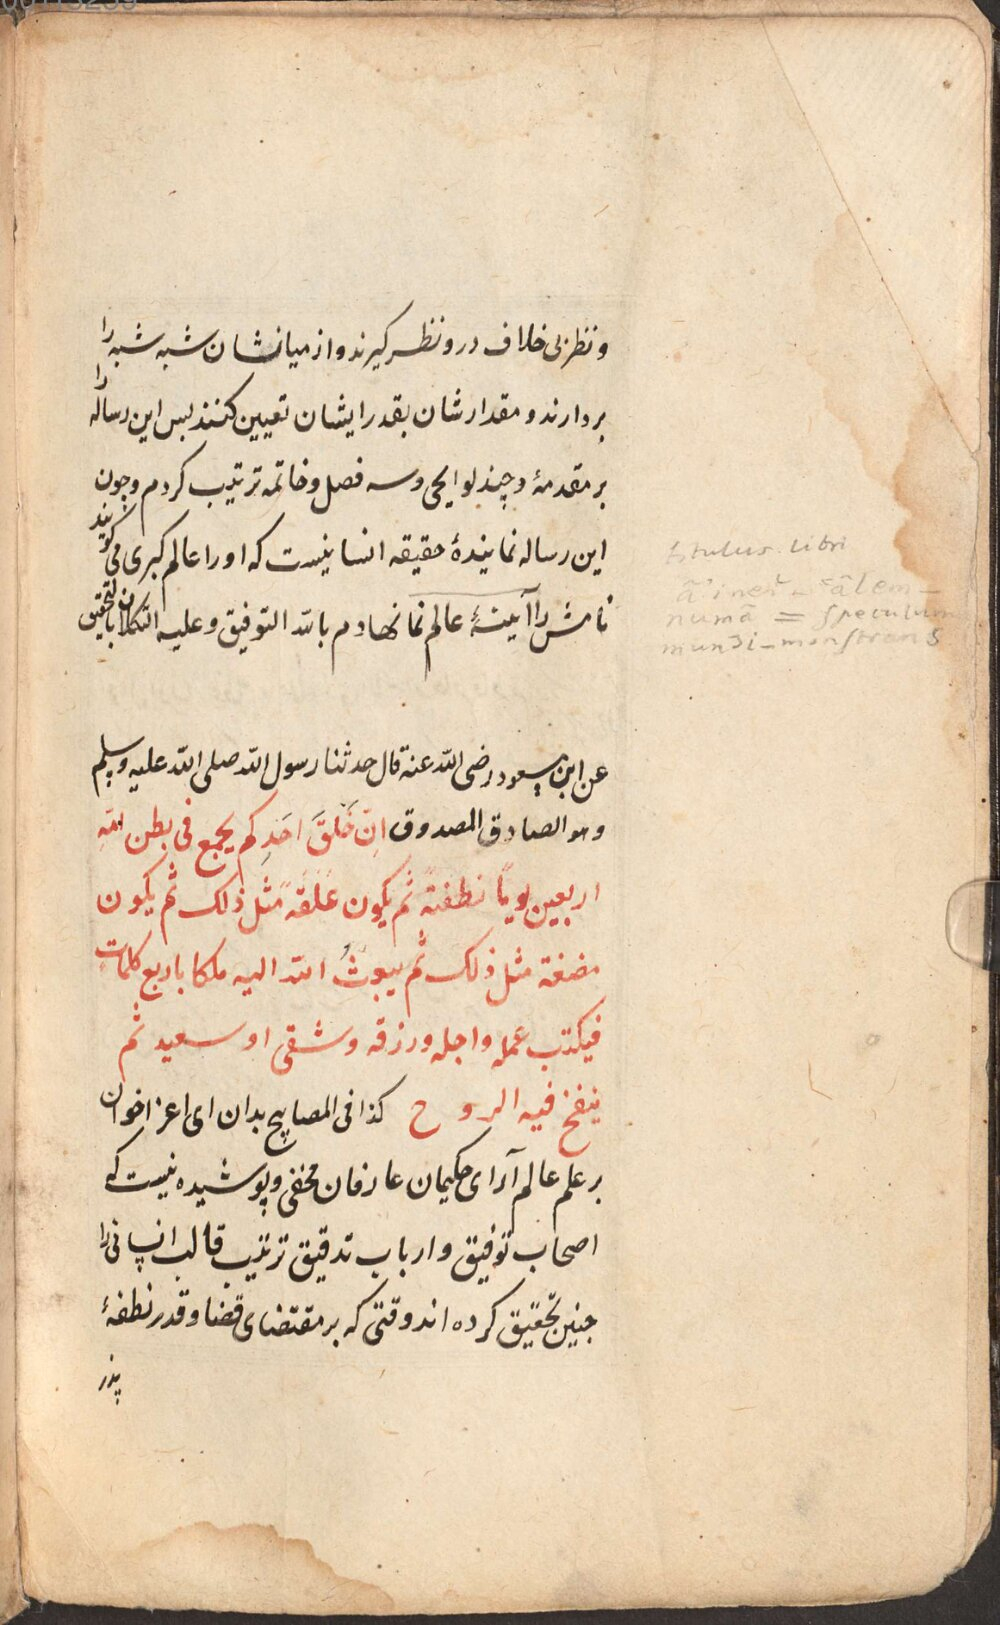 و نظر بی خلاف درو نظر گیرند و از میانشان شبه شبه را
بردارند و مقدارشان بقدر ایشان تعیین کنند پس این رساله را
بر مقدمهٔ و چند لوایحی و سه فصل و خاتمه ترتیب کردم و چون
این رساله نمایندهٔ حقیقه انسانیست که او را عالم کبری می گویند
نامش را آیینهٔ عالم نما نهادم بالله التوفیق و علیه التکلان بالتحقیق
titulus libri
ā'ineʾ-ʿālem-
numā = speculum
mundi-monstrans
عن ابن مسعود رضی الله عنه قال حدثنا رسول الله صلی الله علیه وسلم
وهو الصادق المصدوق اِنّ خَلقَ احَدِکم یجمع فی بطن امّهِ
اربعین یومًا نطفة ثم یکون علقة مثل ذلک ثم یکون
مضغة مثل ذلک ثم یبعثُ الله الیه ملکا باربع کلمات
فیکتب عمله واجله ورزقه وشقی او سعید ثم
ینفخ فیه الروح کذا فی المصابیح بدان ای اعز اخوان
بر علم عالم آرای حکیمان عارفان مخفی و پوشیده نیست که
اصحاب توفیق و ارباب تدقیق ترتیب قالب انسانی را
چنین تحقیق کرده اند وقتی که بر مقتضای قضا و قدر نطفهٔ
پدر